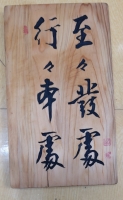 至々發處
行々本處